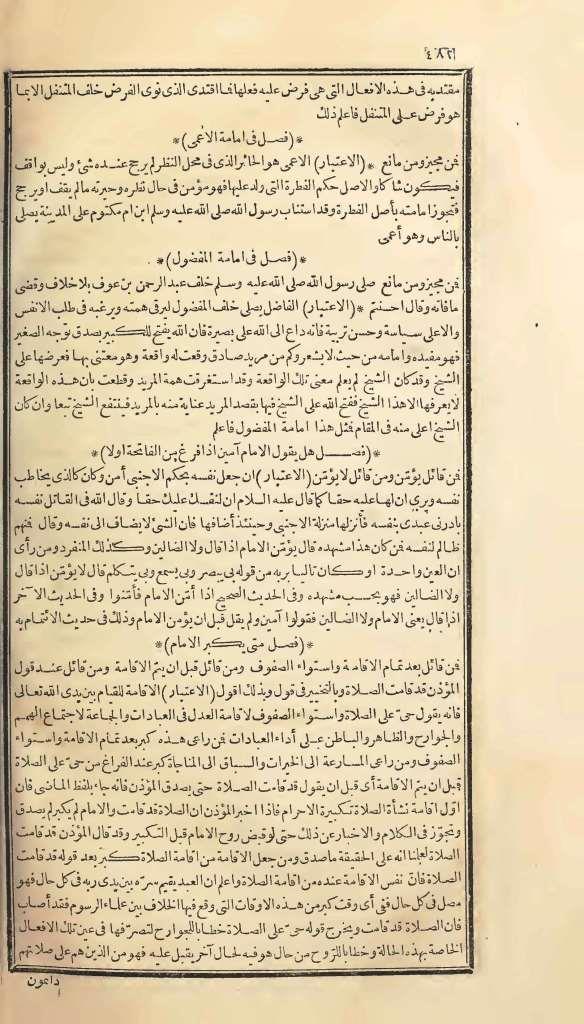 ٤٨٢
مقتديه فى هذه الافعال التى هى فرض عليه فعلها فما اقتدى الذى نوى الفرض خلف المتنفل الا بما
هو فرض على المتنفل فاعلم ذلك
*(فصل فى امامة الاعمى)*
فمن مجيز ومن مانع *(الاعتبار) الاعمى هو الحائر الذى فى محل النظر لم يرجح عنده شئ وليس بواقف
فيكون شاكا والاصل حكم الفطرة التى ولد عليها فهو مؤمن فى حال نظره وحيرته مالم يقف او يرجح
فتجوز امامته بأصل الفطرة وقد استناب رسول الله صلى الله عليه وسلم ابن ام مكتوم على المدينة يصلى
بالناس وهو أعمى
*(فصل فى امامة المفضول)*
فمن مجيز ومن مانع صلى رسول الله صلى الله عليه وسلم خلف عبد الرحمن بن عوف بلا خلاف وقضى
ما فاته وقال احسنتم *(الاعتبار) الفاضل يصلى خلف المفضول ليرقى همته ويرغبه فى طلب الانفس
والاعلى سياسة وحسن تربية فانه داع الى الله على بصيرة فان الله يفتح للكبير بصدق توجه الصغير
فهو مفيده وامامه من حيث لا يشعر وكم من مريد صادق وقعت له واقعة وهو معتنى بها فعرضها على
الشيخ وقد كان الشيخ لم يعلم معنى تلك الواقعة وقد استغرقت همة المريد وقطعت بان هذه الواقعة
لا يعرفها الا هذا الشيخ ففتح الله على الشيخ فيها بقصد المريد عناية منه بالمريد فينتفع الشيخ تبعا وان كان
الشيخ اعلى منه فى المقام فمثل هذا امامة المفضول فاعلم
*(فصـــل هل يقول الامام آمين اذا فرغ من الفاتحة اولا)*
فمن قائل يؤمّن ومن قائل لا يؤمّن (الاعتبار) ان جعل نفسه بحكم الاجنبى أمن وكان كالذى يخاطب
نفسه ويرى ان لها عليه حقا كما قال عليه السلام ان لنفسك عليك حقا وقال الله فى القاتل نفسه
بادرنى عبدى بنفسه فأنزلها منزلة الاجنبى وحينئذ أضافها فان الشئ لا يضاف الى نفسه وقال فمنهم
ظالم لنفسه فمن كان هذا مشهده قال يؤمّن الامام اذا قال ولا الضالين وكذلك المنفرد ومن رأى
ان العين واحدة او كان تاليا بربه من قوله بى يبصر وبى يسمع وبى يتكلم قال لا يؤمّن اذا قال
ولا الضالين فهو بحسب مشهده وفى الحديث الصحيح اذا أمّن الامام فأمّنوا وفى الحديث الآخر
اذا قال يعنى الامام ولا الضالين فقولوا آمين ولم يقل قبل ان يؤمن الامام وذلك فى حديث الائتمام به
*(فصل متى يكبر الامام)*
فمن قائل بعد تمام الاقامة واستواء الصفوف ومن قائل قبل ان يتم الاقامة ومن قائل عند قول
المؤذن قد قامت الصلاة وبالتخيير فى قول وبذلك اقول (الاعتبار) الاقامة للقيام بين يدى الله تعالى
فانه يقول حىّ على الصلاة واستواء الصفوف لاقامة العدل فى العبادات والجماعة لاجتماع الهمم
والجوارح والظاهر والباطن على أداء العبادات فمن راعى هذه كبر بعد تمام الاقامة واستواء
الصفوف ومن راعى المسارعة الى الخيرات والسباق الى المناجاة كبر عند الفراغ من حىّ على الصلاة
قبل ان يتم الاقامة أى قبل ان يقول قد قامت الصلاة حتى يصدق المؤذن فانه جاء بلفظ الماضى فان
اوّل اقامة نشأة الصلاة تكبيرة الاحرام فاذا اخبر المؤذن ان الصلاة قد قامت والامام لم يكبر لم يصدق
وتجوّز فى الكلام والاخبار عن ذلك حتى لو قبض روح الامام قبل التكبير وقد قال المؤذن قد قامت
الصلاة لعلمنا انه على الحقيقة ما صدق ومن جعل الاقامة من اقامة الصلاة كبر بعد قوله قد قامت
الصلاة فانّ نفس الاقامة عنده من اقامة الصلاة واعلم ان العبد يقيم سرّه بين يدى ربه فى كل حال فهو
مصل فى كل حال ففى أى وقت كبر من هذه الاوقات التى وقع فيها الخلاف بين علماء الرسوم فقد أصاب
فان الصلاة قد قامت ويخرج قوله حىّ على الصلاة خطابا للجوارح لتصرّفها فى عين تلك الافعال
الخاصة بهذه الحالة وخطابا للرّوح من حال هو فيه لحال آخر يقبل عليه فهو من الذين هم على صلاتهم
دائمون